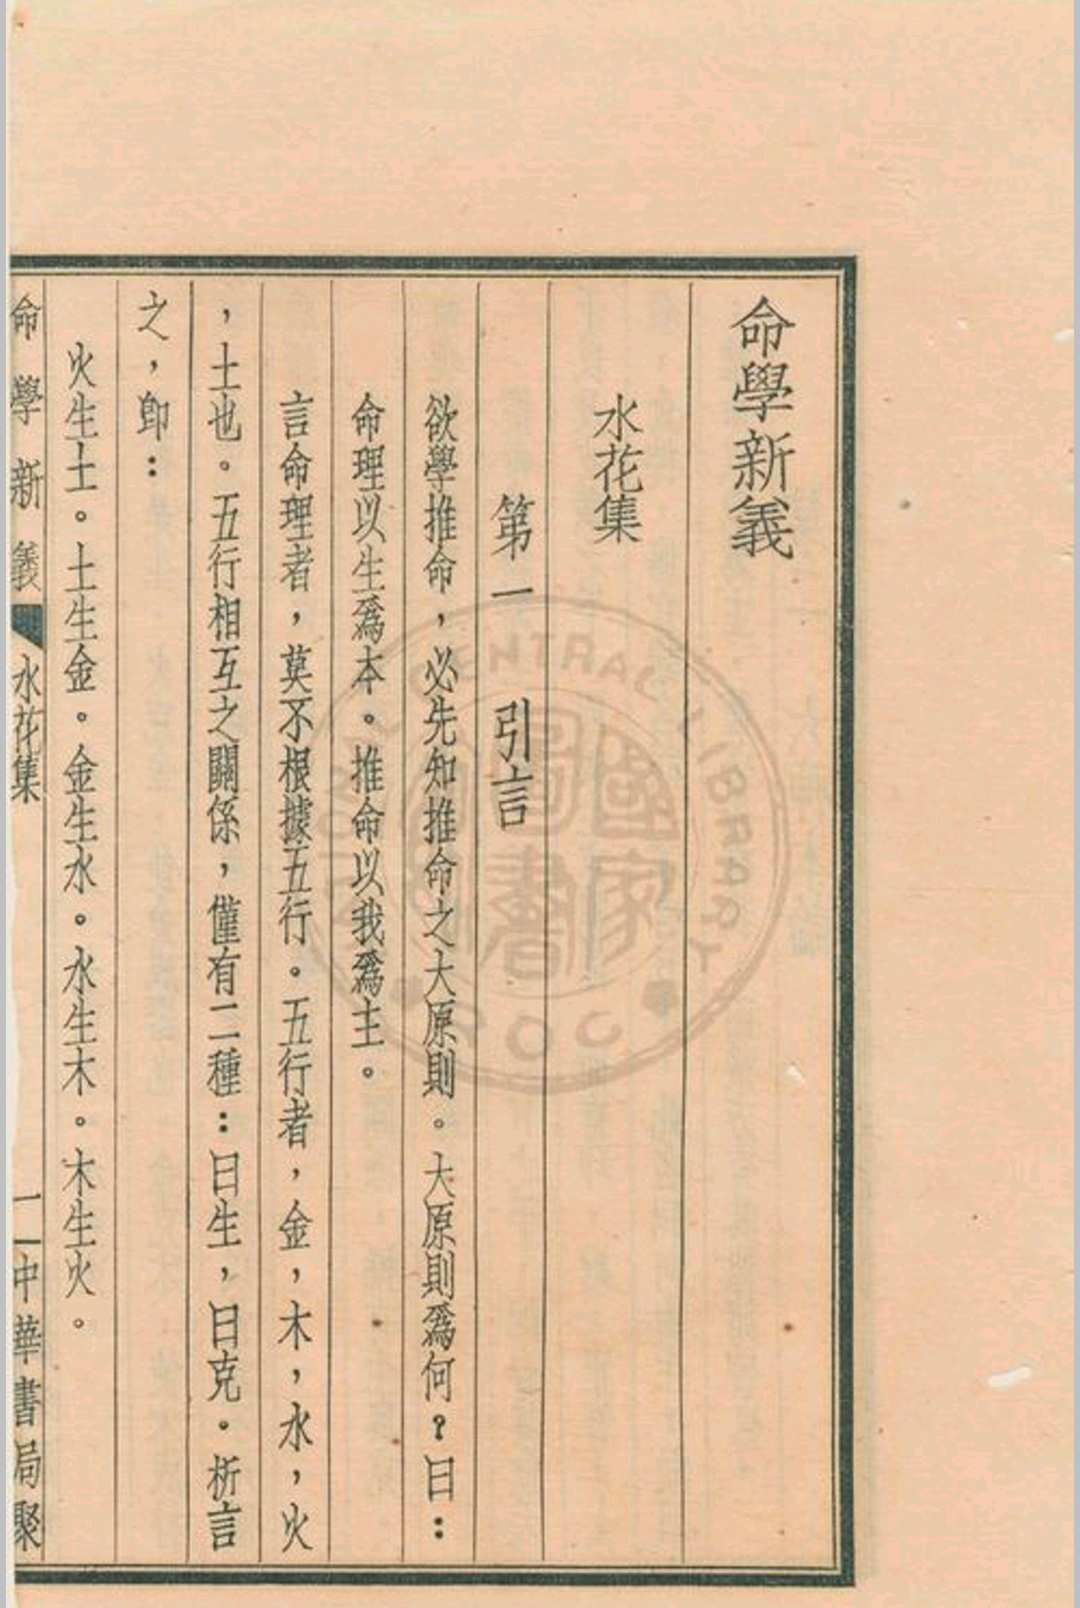 命學新義
水花集
第一　引言
欲學推命，必先知推命之大原則。大原則爲何？曰：
命理以生爲本。推命以我爲主。
言命理者，莫不根據五行。五行者，金，木，水，火
，土也。五行相互之關係，僅有二種：曰生，曰克。析言
之，卽：
火生土。土生金。金生水。水生木。木生火。
命學新義　水花集　一　中華書局聚
CENTRAL LIBRARY
ROC
國家
圖書